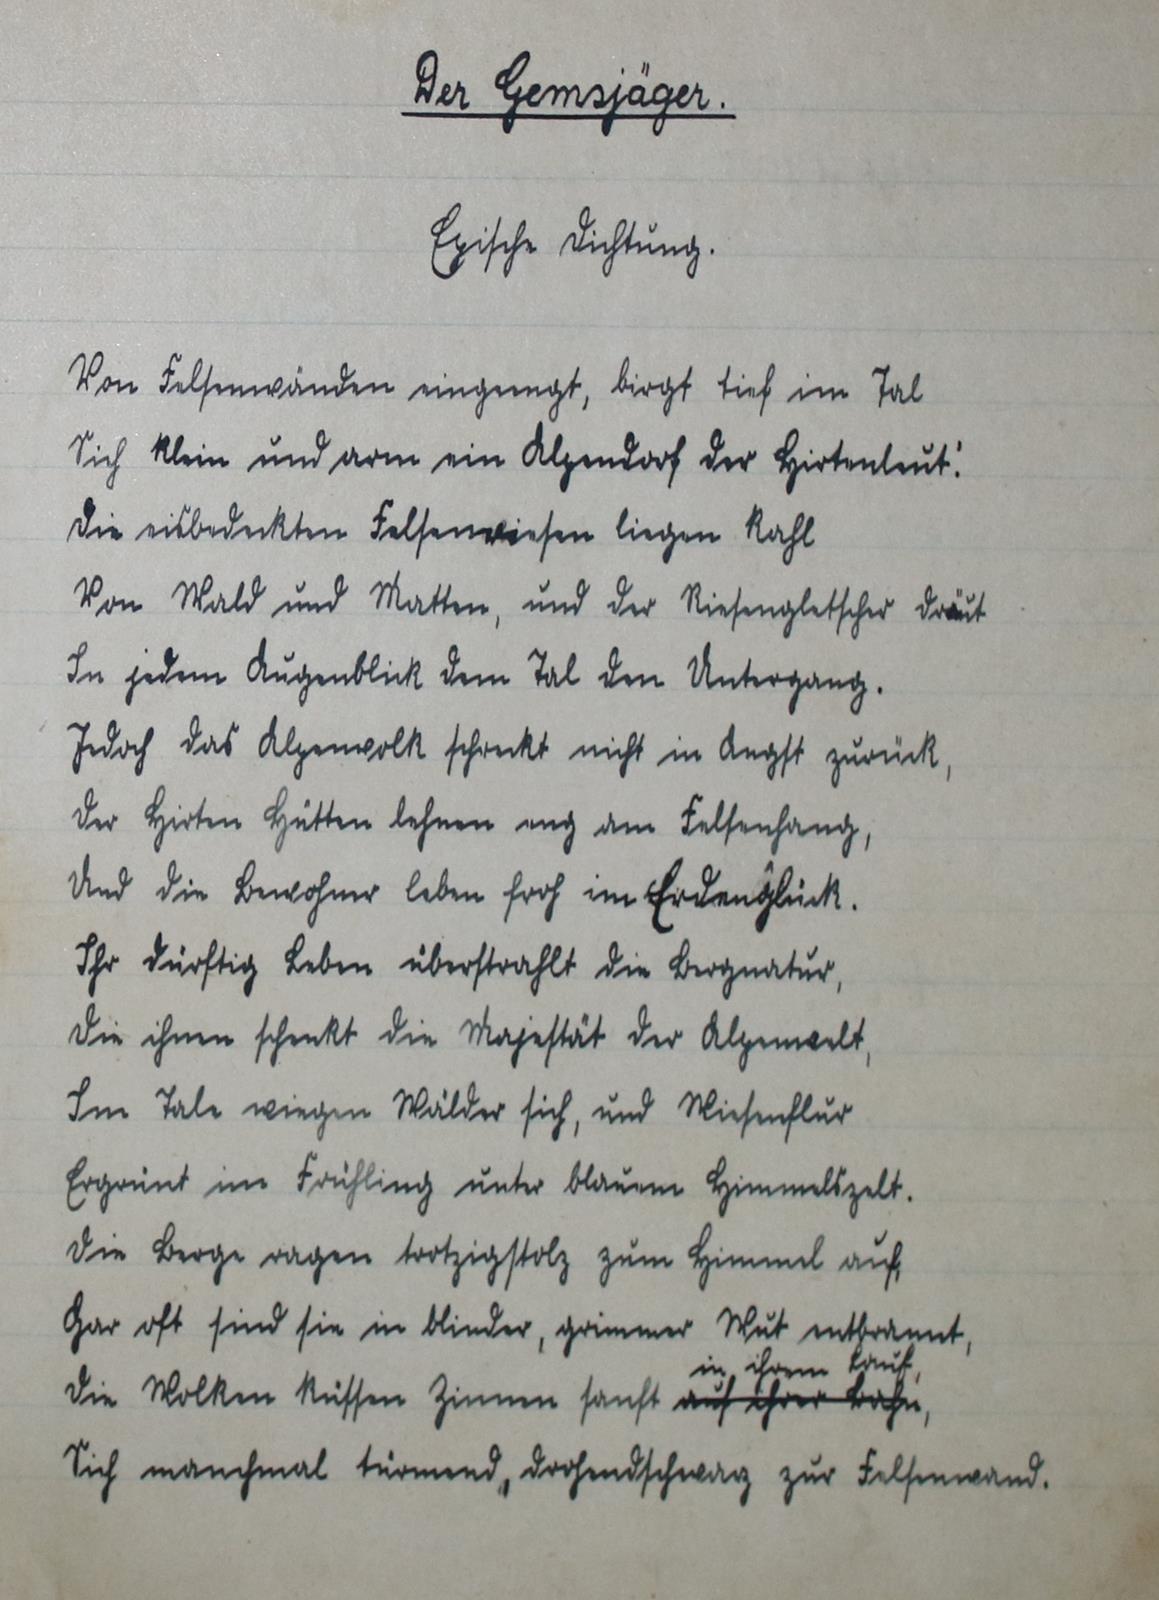 Der Gemsjäger.
Epische Dichtung.
Von Felsenwänden eingeengt, birgt tief im Tal
Sich klein und arm ein Alpendorf der Hirtenleut'.
Die eisbedeckten Felsenriesen liegen kahl
Von Wald und Matten, und der Riesengletscher dräut
In jedem Augenblick dem Tal den Untergang.
Jedoch das Alpenvolk schreckt nicht in Angst zurück,
Der Hirten Hütten lehnen eng am Felsenhang,
Und die Bewohner leben froh im Erdenglück.
Ihr dürftig Leben überstrahlt die Bergnatur,
Die ihnen schenkt die Majestät der Alpenwelt,
Im Tale wiegen Wälder sich, und Wiesenflur
Ergrünt im Frühling unter blauem Himmelszelt.
Die Berge ragen trotzigstolz zum Himmel auf,
Gar oft sind sie in blinder, grimmer Wut entbrannt,
in ihrem Lauf,
Die Wolken küssen Zinnen sanft auf ihrer Bahn,
Sich manchmal türmend, drohendschwarz zur Felsenwand.